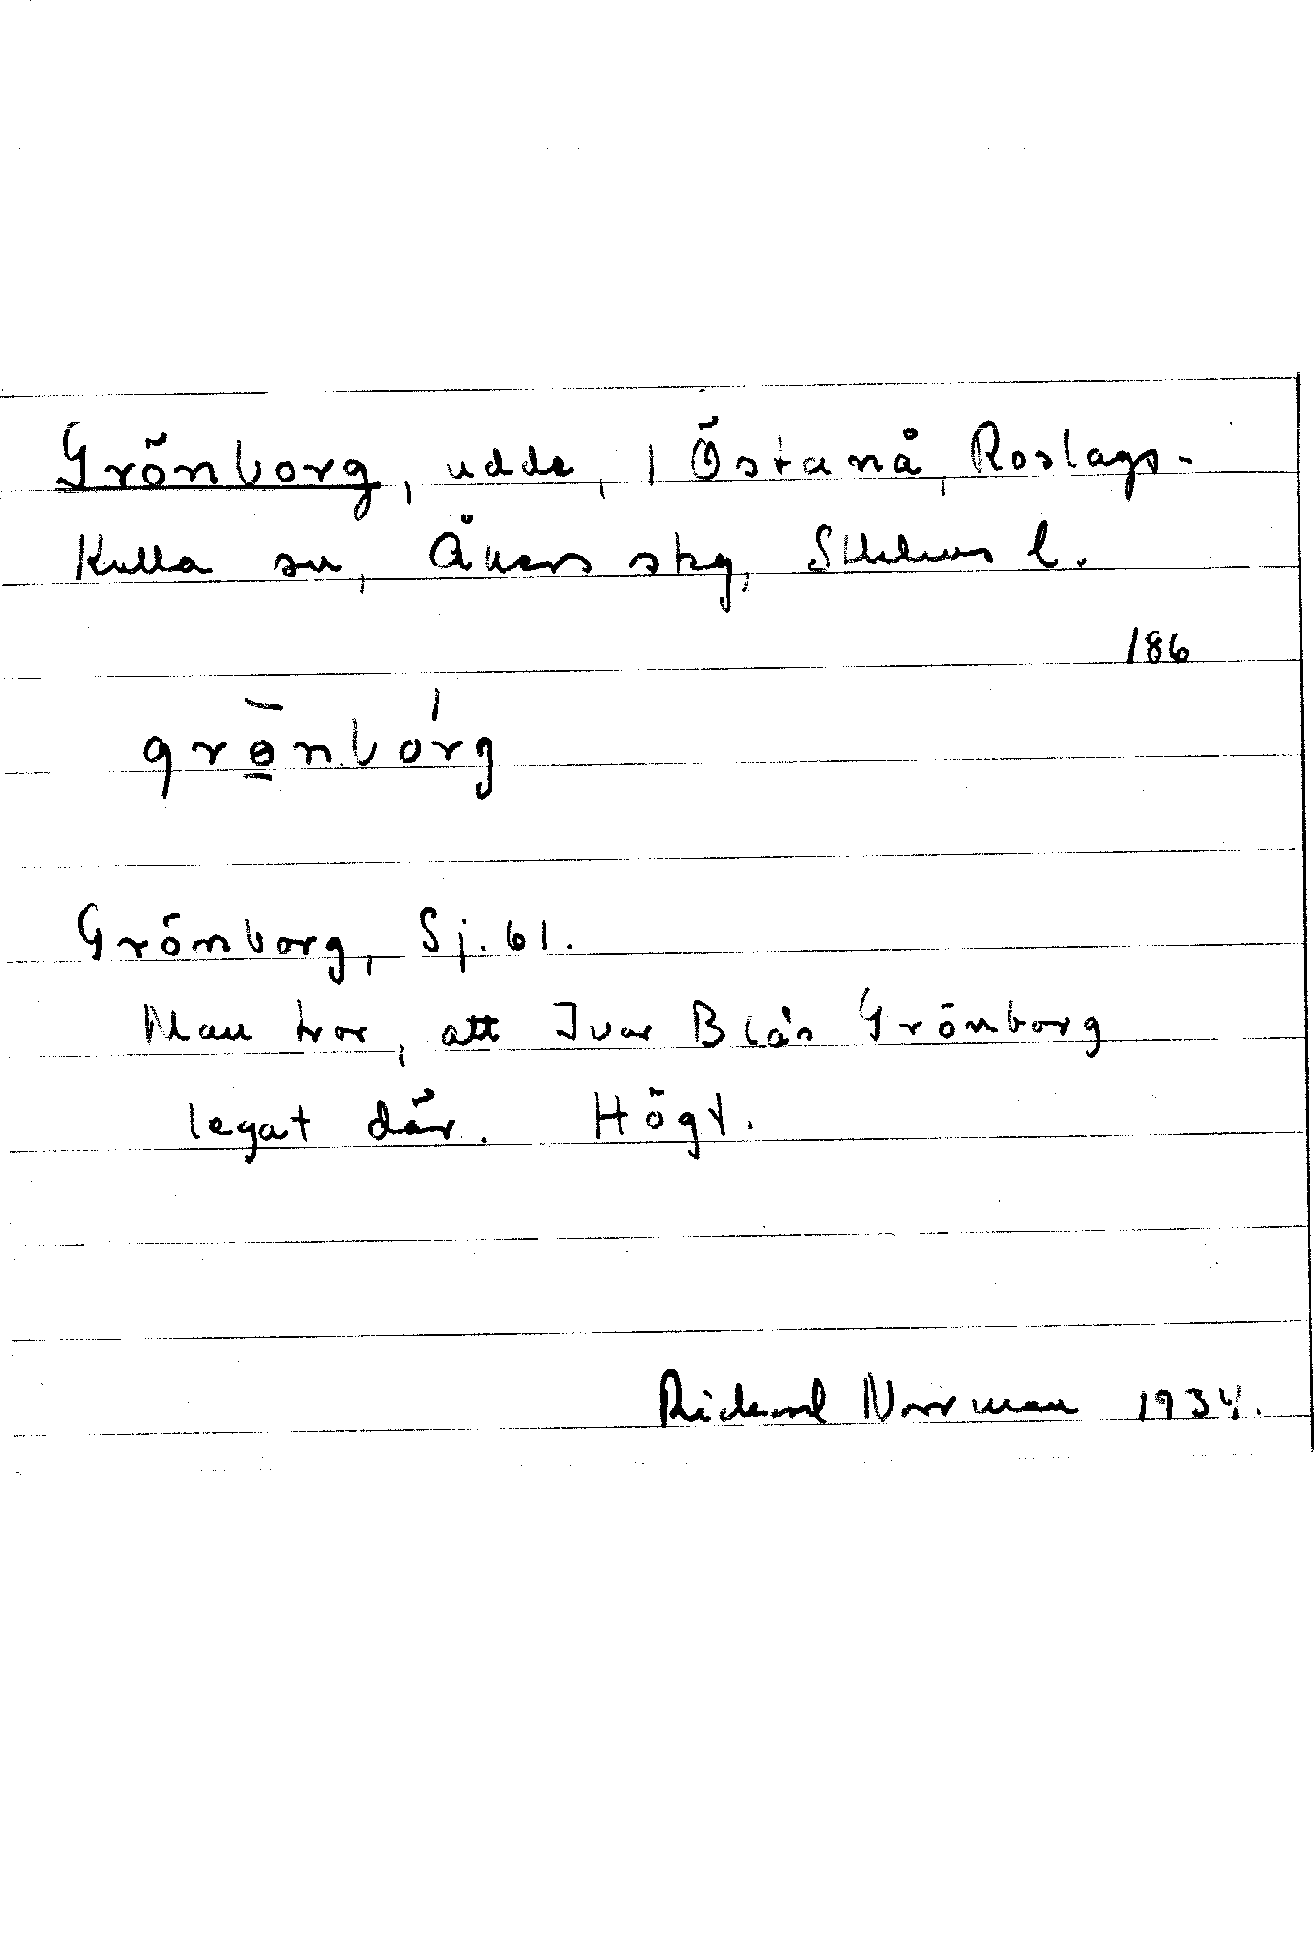 Grönborg, udde, 1 Östanå, Roslags-
Kulla sn, Åkers skg, Sthlms l.
186
grө̄nbórg
Grönborg, Sj. 61.
Man tror, att Ivar Blå's Grönborg
legat där. Högt.
Rickard Norrman 1934.